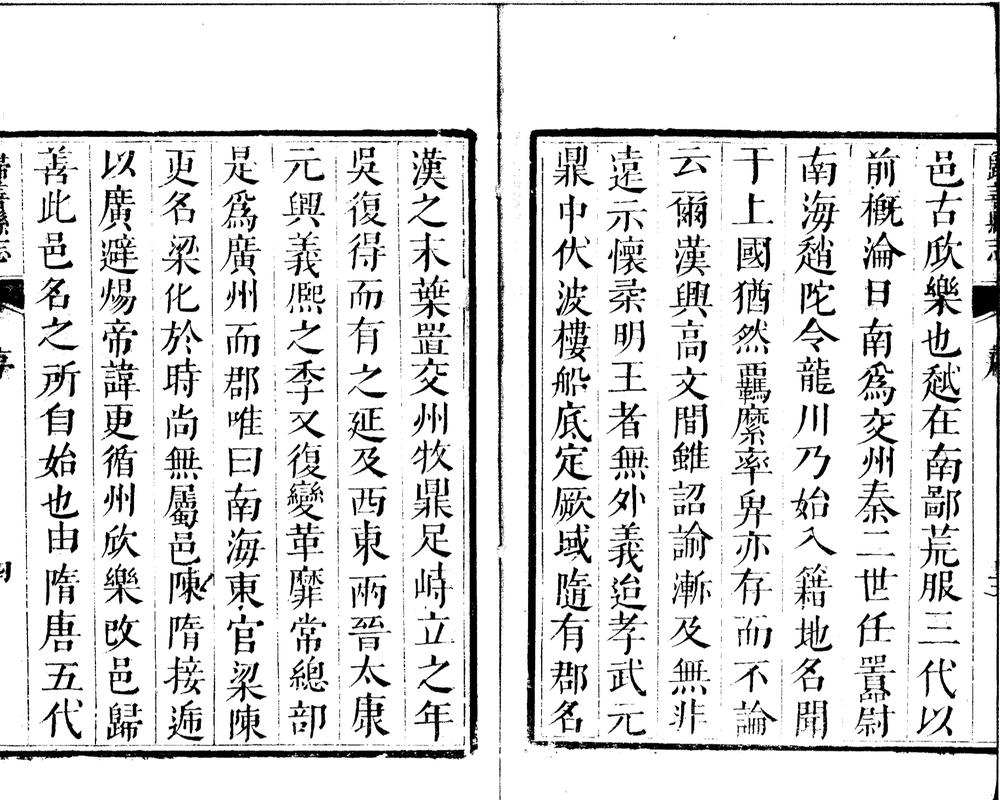 邑古欣樂也越在南鄙荒服三代以
前概淪日南爲交州秦二世任囂尉
南海趙陀令龍川乃始入籍地名聞
于上國猶然羈縻率𢌿亦存而不論
云爾漢興高文間雖詔諭漸及無非
遠示懷柔明王者無外義迨孝武元
鼎中伏波樓船底定厥域隨有郡名
漢之末葉置交州牧鼎足峙立之年
吳復得而有之延及西東兩晉太康
元興義熙之季又復變革靡常總部
是爲廣州而郡唯曰南海東官梁陳
更名梁化於時尚無屬邑陳隋接迹
以廣避煬帝諱更循州欣樂改邑歸
善此邑名之所自始也由隋唐五代
歸善縣志
序
四